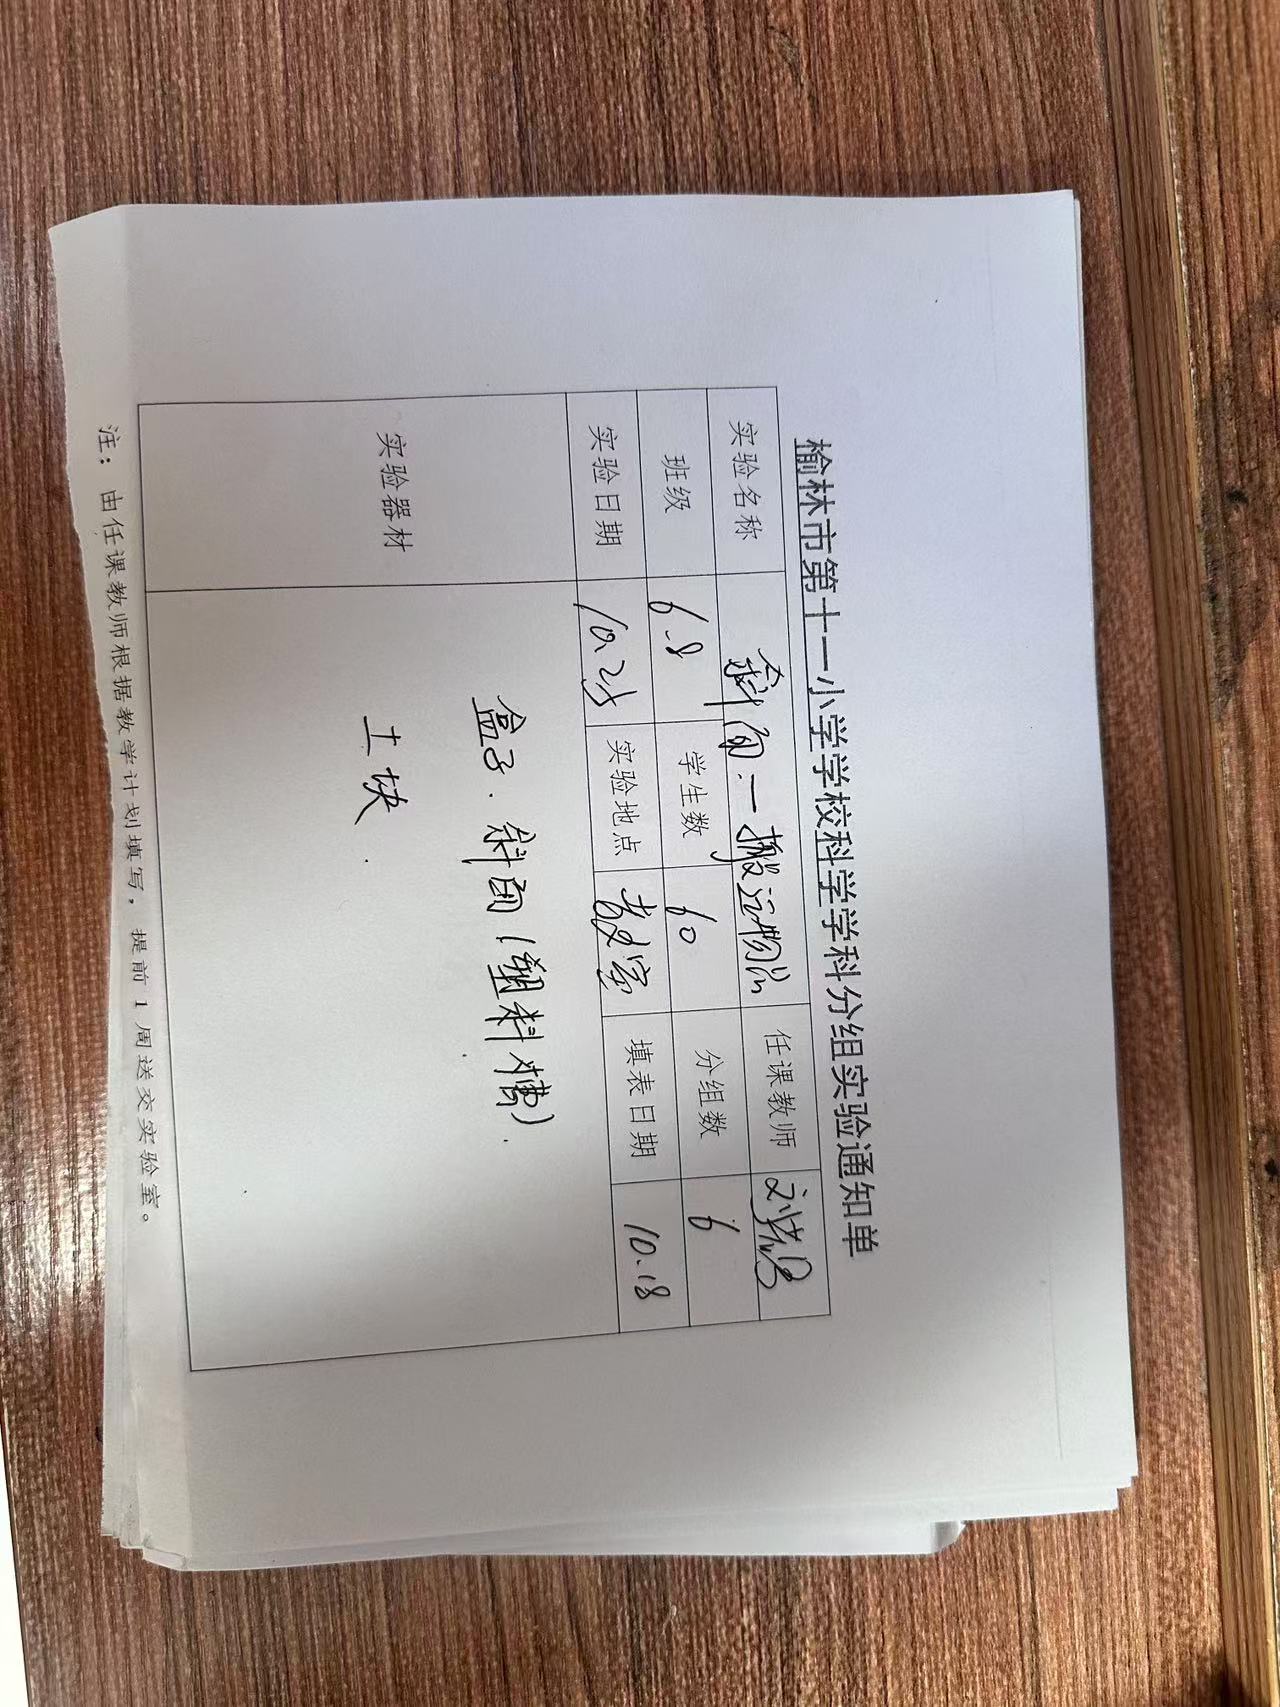 榆林市第十一小学学校科学学科分组实验通知单
实验名称 斜面.一搬运物品 任课教师
班级 6.8 学生数 60 分组数 6
实验日期 10.25 实验地点 教室 填表日期 10.18
实验器材 盒子.斜面(塑料槽).
土块.
注：由任课教师根据教学计划填写，提前1周送交实验室。